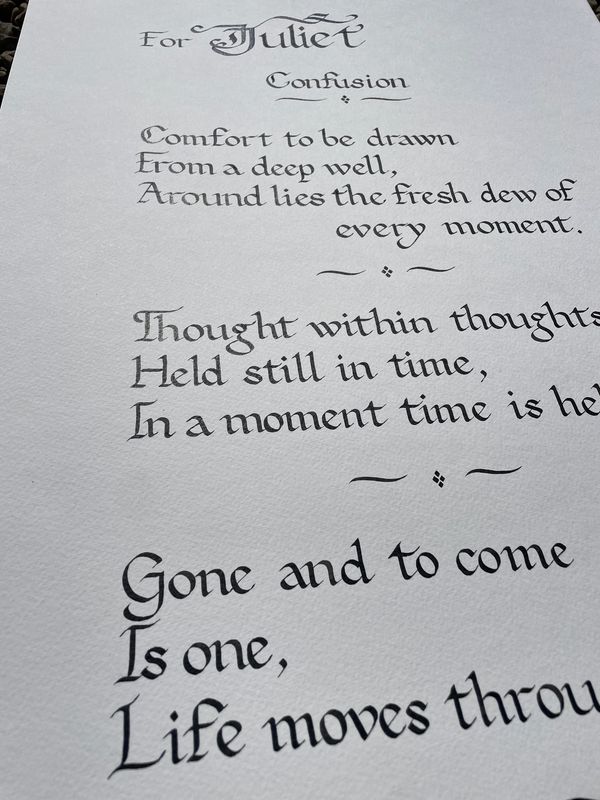 For Juliet
Confusion
Comfort to be drawn
From a deep well,
Around lies the fresh dew of
every moment.
Thought within thoughts
Held still in time,
In a moment time is
Gone and to come
Is one,
Life moves